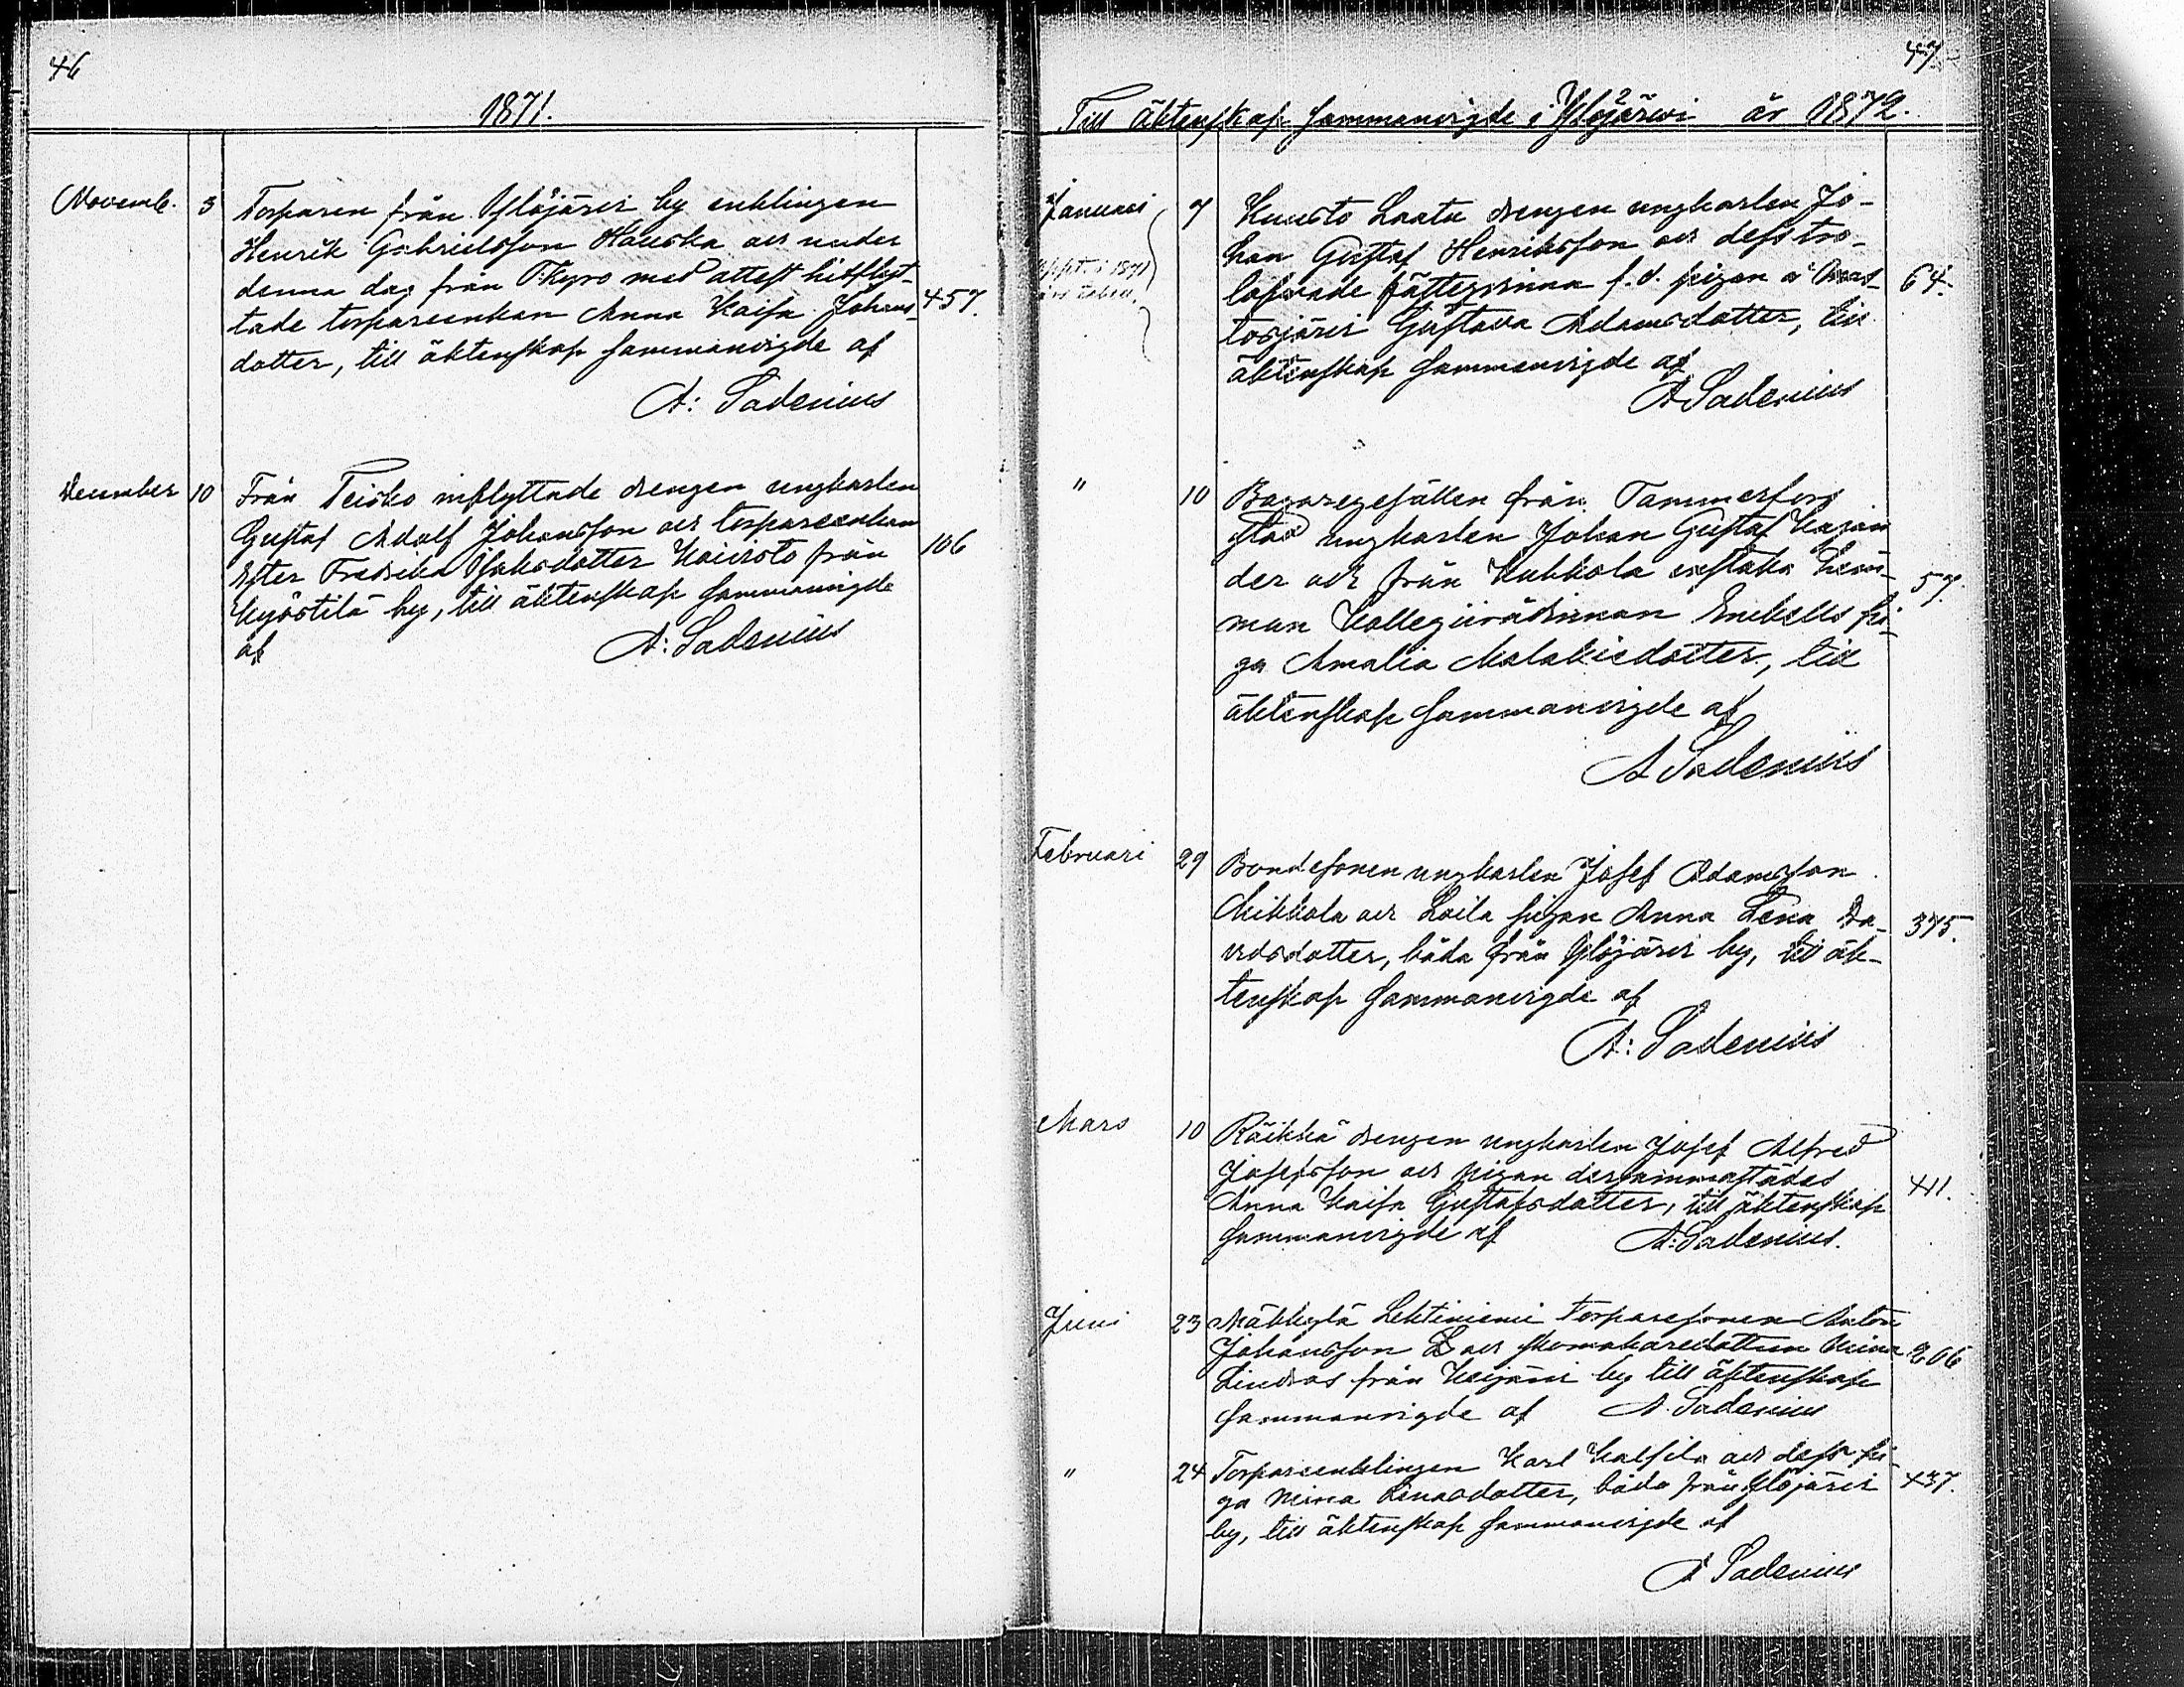 46
1871.
Novemb. 3 Torparen från Ylöjärvi by enklingen
Henrik Gabrielsson Hauska och under
denna dag från TKyro med attest hitflyt-
tade torpareenkan Anna Kaisa Johans- 457.
dotter, till äktenskap sammanvigde af
A: Sadenius
December 10 Från Teisko inflyttade drengen ungkarlen
Gustaf Adolf Johansson och torpareenkan
Ester Fredrika Isaksdotter Koivisto från 106
Kyöstilä by, till äktenskap sammanvigde
af A: Sadenius
47
Till äktenskap sammanvigde i Ylöjärwi år 1872.
Januari 7 Kuusto Laatu drengen ungkarlen Jo-
han Gustaf Henriksson och dess tro-
lofvade fästeqvinna f.d. pigan å 64.
Gustava Adamsdotter, till
äktenskap sammanvigde af
A Sadenius
" 10 Bagaregesällen från Tammerfors
stad ungkarlen Johan Gustaf Kajan
der och från Kukkola
man Kollegiirådinnan Enebells pi- 57.
ga Amalia Malakiedotter, till
äktenskap sammanvigde af
A Sadenius
Februari 29 Bondesonen ungkarlen Josef Adamsson
Mikkola och Loila pigan Anna Lena Da- 375.
vidsdotter, båda från Ylöjärvi by, till äk-
tenskap sammanvigde af
A: Sadenius
Mars 10 Räikkä drengen ungkarlen Josef Alfred
Josefsson och pigan dersammastädes
Anna Kaisa Gustafsdotter, till äktenskap 411.
sammanvigde af A: Sadenius.
Juni 23 Mäkkylä Lehtiniemi torparesonen Anton
Johansson och skomakaredottren Mina 206
Lindroos från Keijärvi by till äktenskap
sammanvigde af A. Sadenius
" 24 Torpareenklingen Karl Kalsila och dess pi-
ga Mina Linasdotter, båda från Ylöjärvi 437.
by, till äktenskap sammanvigde af
A Sadenius